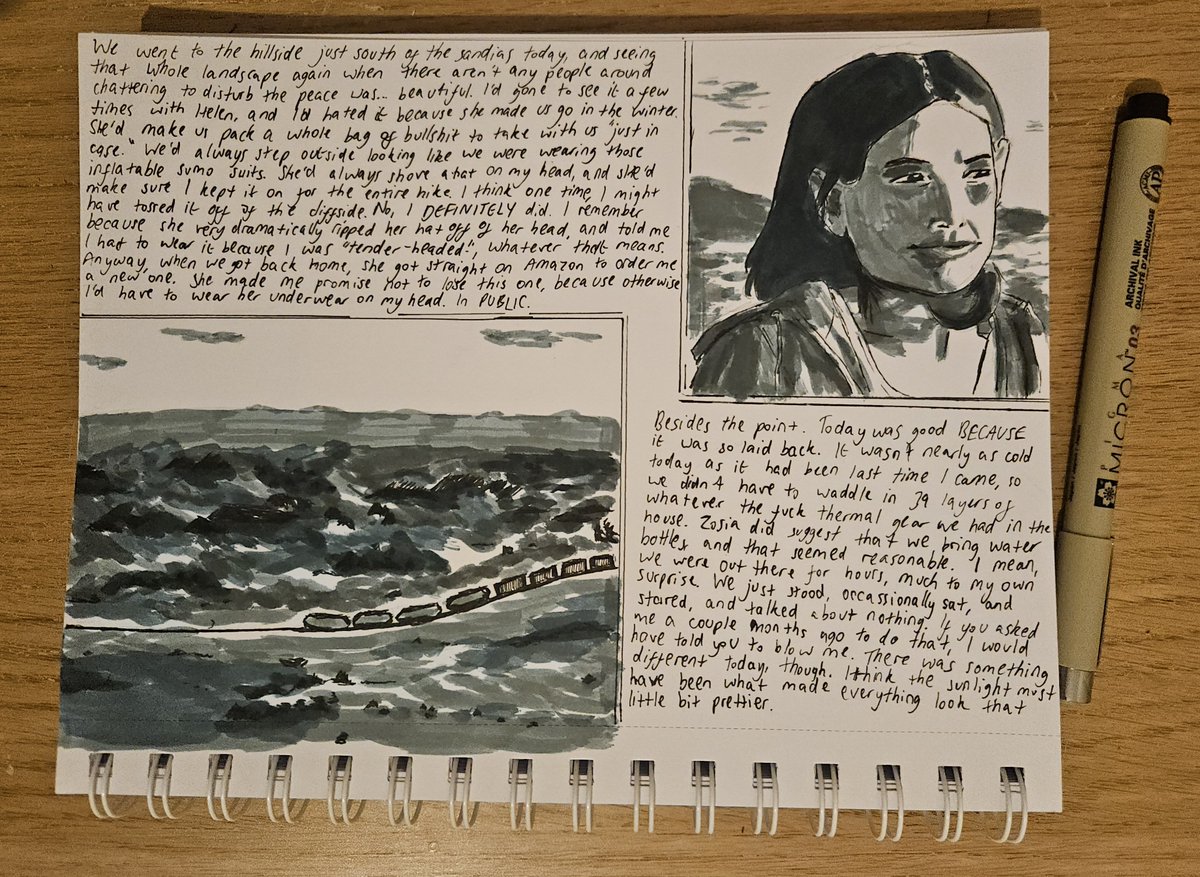 We went to the hillside just south of the sandias today, and seeing
that whole landscape again when there aren't any people around
chattering to disturb the peace was... beautiful. I'd gone to see it a few
times with Helen, and I'd hated it because she made us go in the winter.
She'd make us pack a whole bag of bullshit to take with us "just in
case." We'd always step outside looking like we were wearing those
inflatable sumo suits. She'd always shove a hat on my head, and she'd
make sure I kept it on for the entire hike. I think one time, I might
have tossed it off of the cliffside. No, I DEFINITELY did. I remember
because she very dramatically ripped her hat off of her head, and told me
I had to wear it because I was "tender-headed", whatever that means.
Anyway, when we got back home, she got straight on Amazon to order me
a new one. She made me promise not to lose this one, because otherwise
I'd have to wear her underwear on my head. In PUBLIC.
Besides the point. Today was good BECAUSE
it was so laid back. It wasn't nearly as cold
today as it had been last time I came, so
we didn't have to waddle in 39 layers of
whatever the fuck thermal gear we had in the
house. Zosia did suggest that we bring water
bottles, and that seemed reasonable. I mean,
we were out there for hours, much to my own
surprise. We just stood, occassionally sat, and
stared, and talked about nothing. If you asked
me a couple months ago to do that, I would
have told you to blow me. There was something
different today, though. I think the sunlight must
have been what made everything look that
little bit prettier.
PIGMA
MICRON 03
ARCHIVAL INK
QUALITÉ D'ARCHIVAGE
AP